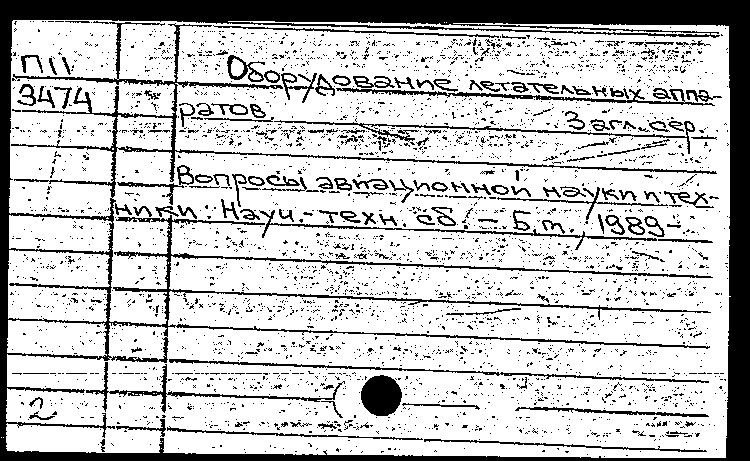 П11
Оборудование летательных аппа-
3474
ратов
Загл. сер.
Вопросы авиационной науки и тех-
ники: Науч.-техн. сб. – Б.м., 1989-
2